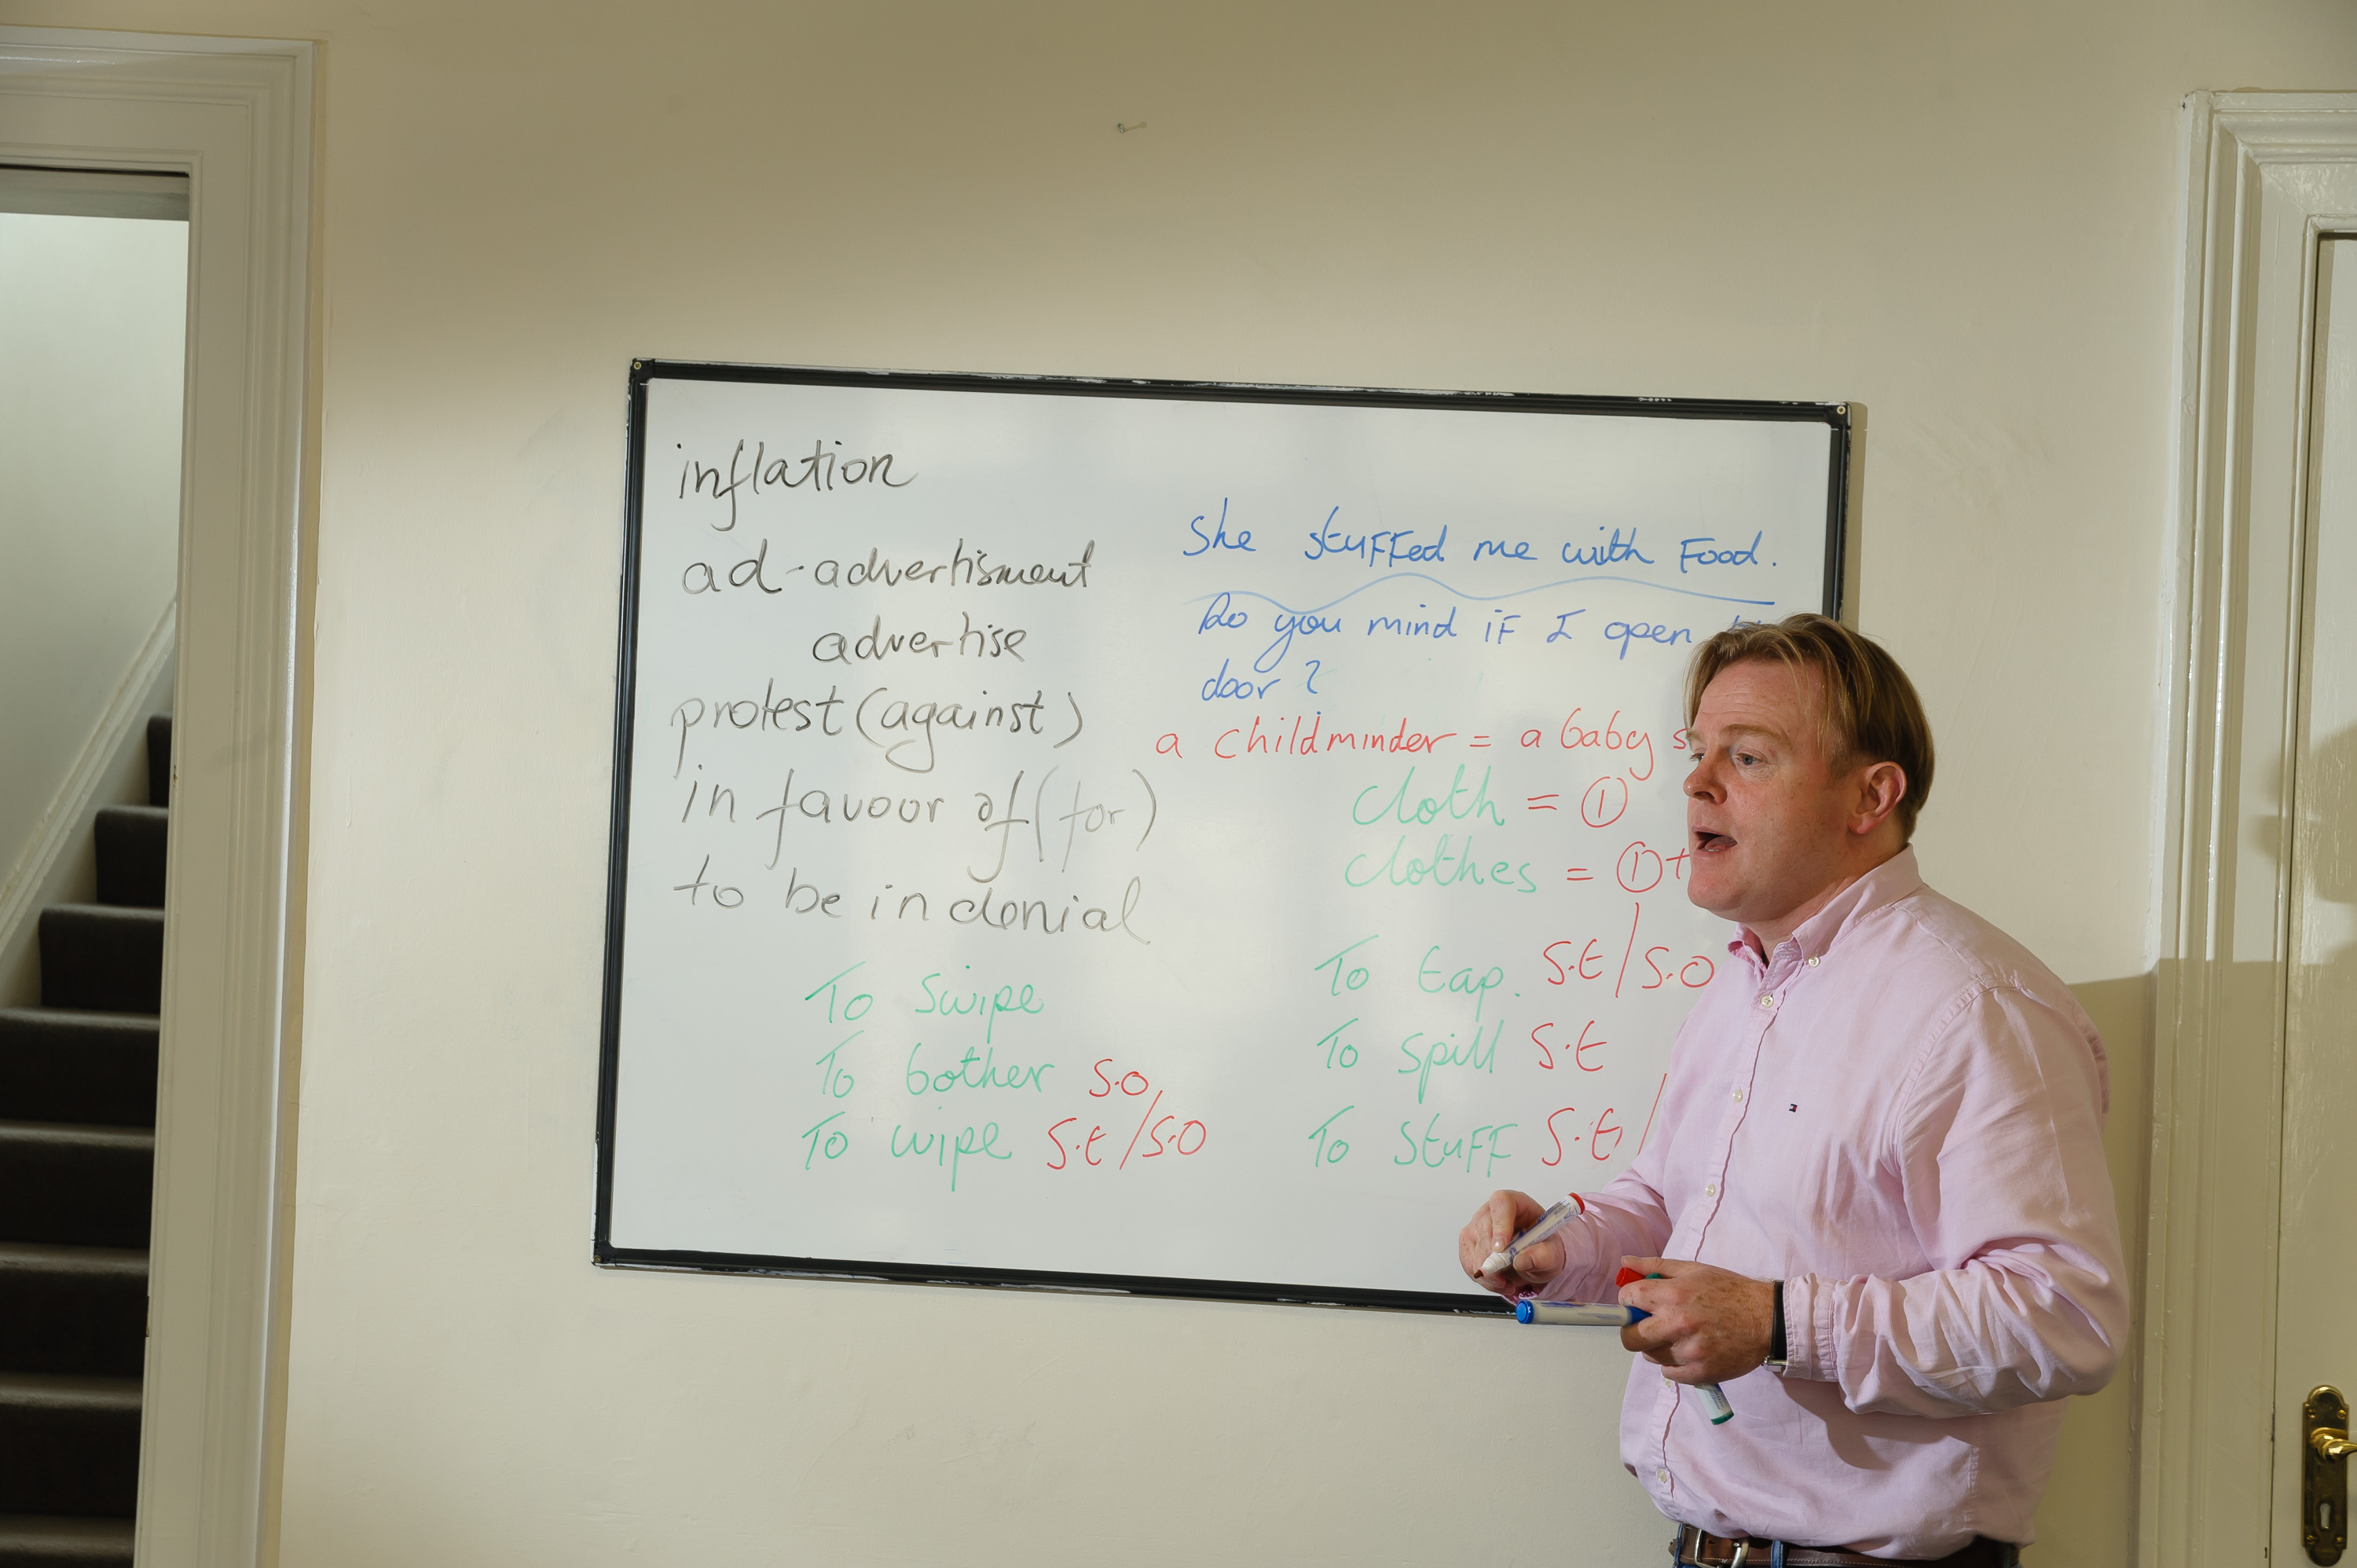 inflation
ad - advertisment
advertise
protest (against)
in favour of (for)
to be in denial
To Swipe
To bother S.O
To wipe S.t / S.O
She stuffed me with Food.
Do you mind if I open
door ?
a childminder = a baby
cloth = ①
clothes = ①+
To tap. S.t / S.O
To spill S.t
To Stuff S.t /